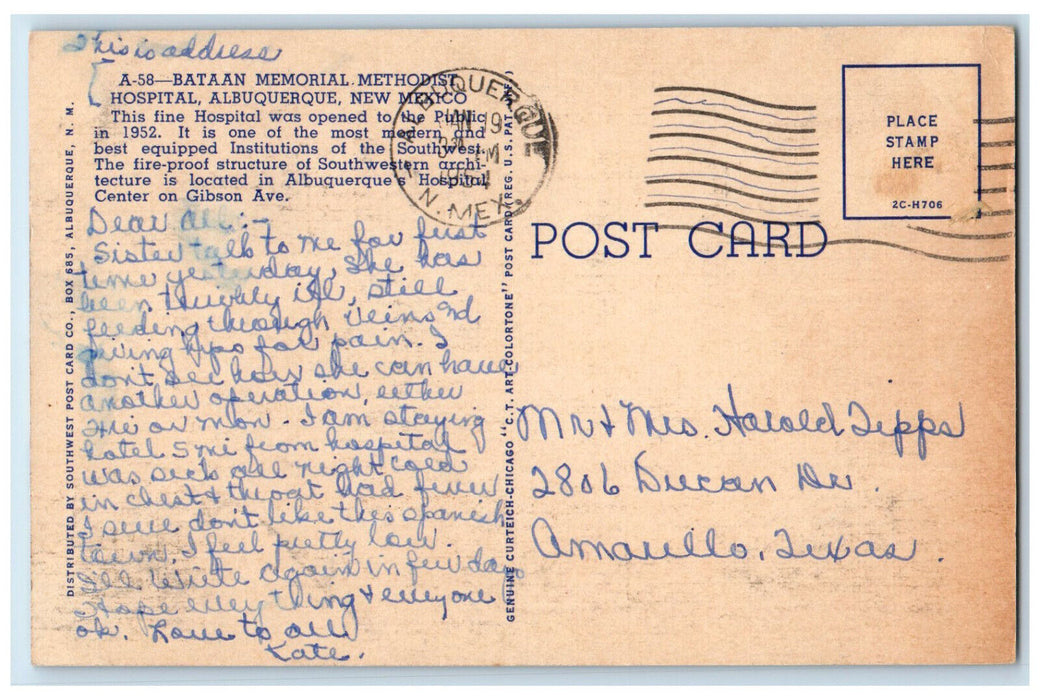 This is address
A-58—BATAAN MEMORIAL METHODIST
HOSPITAL, ALBUQUERQUE, NEW MEXICO
This fine Hospital was opened to the Public
in 1952. It is one of the most modern and
best equipped Institutions of the Southwest.
The fire-proof structure of Southwestern archi-
tecture is located in Albuquerque's Hospital
Center on Gibson Ave.
Dear all:-
Sister talk to me for first
time yesterday, She has
been ill, still
feeding through veins and
giving hypo for pain. I
don't see how she can have
another operation, either
Fri or Mon. I am staying
hotel 5 mi from hospital
was sick all night cold
in chest & throat had fever
I sure don't like this spanish
town. I feel pretty low.
Ill write again in few days
Hope every thing & everyone
ok. Love to all
Kate.
DISTRIBUTED BY SOUTHWEST POST CARD CO., BOX 685, ALBUQUERQUE, N. M.
GENUINE CURTEICH-CHICAGO "C.T. ART-COLORTONE" POST CARD (REG. U.S. PAT. OFF.)
ALBUQUERQUE
JAN 19
3 30 PM
1954
N. MEX.
PLACE
STAMP
HERE
2C-H706
POST CARD
Mr & Mrs. Harold Tipps
2806 Ducan Dr.
Amarillo, Texas.